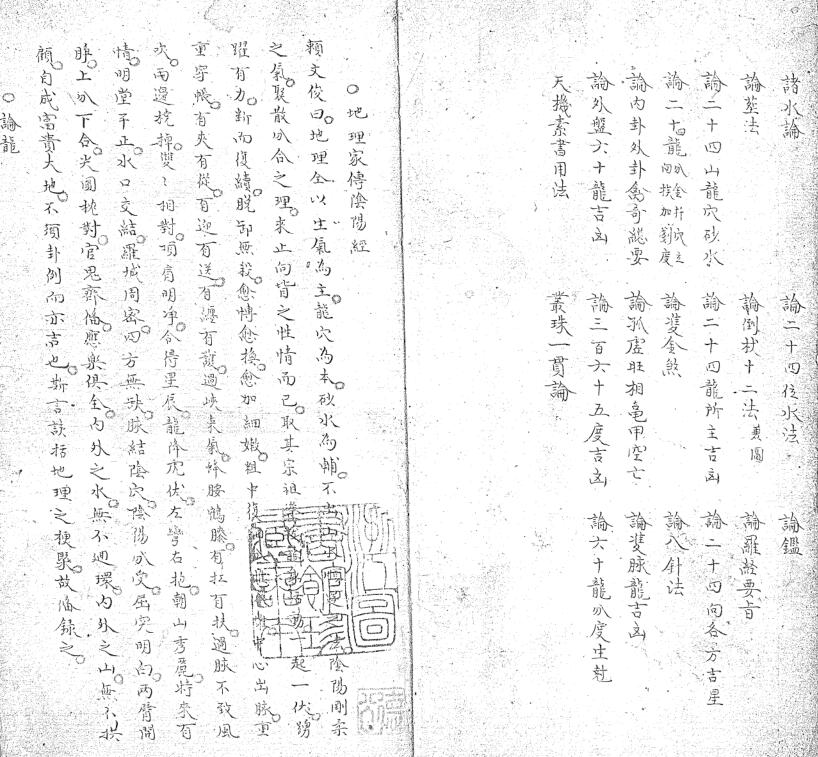 諸水論　論二十四位水法　論鑑
論葬法　論倒杖十二法兼圖　論羅經要旨
論二十四山龍穴砂水　論二十四龍所主吉凶　論二十四向各方吉星
論二十龍分金扦穴立向挨加到度　論雙金煞　論八針法
論內卦外卦禽奇總要　論孤虛旺相龜甲空亡　論雙脉龍吉凶
論外盤六十龍吉凶　論三百六十五度吉凶　論六十龍分度生尅
天機素書用法　叢珠一貫論
○地理家傳陰陽經
賴文俊曰地理全以生氣為主龍穴為本砂水為輔不出陰陽剛柔
之氣聚散分合之理來止向背之性情而已取其宗祖一起一伏踴
躍有力斷而復續脫卸無殺愈博愈換愈加細嫩粗中復中心出脉重
重字帳有夾有從有迎有送有纏有護過峽束氣蜂腰鶴膝有扛有扶過脉不致風
吹兩邊枕掉雙〻相對項肩明净合得星辰龍降虎伏左彎右抱朝山秀麗將來有
情明堂平正水口交結羅城周密四方無缺脉結陰穴陰陽分受屈突明白兩臂開
睜上分下合尖圓枕對官鬼齊俻應樂俱全內外之水無不迴環內外之山無不拱
顧自成富貴大地不須卦例而亦吉也斯言該括地理之梗槩故俻錄之
○論龍